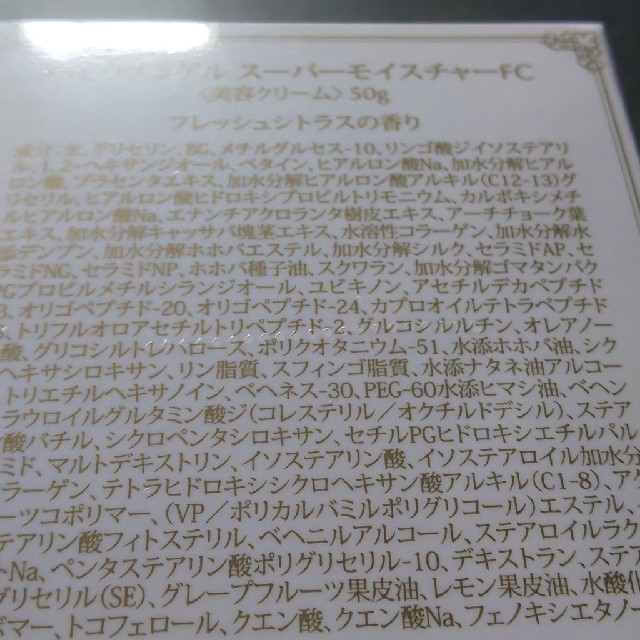 ゲル スーパーモイスチャーFC
〈美容クリーム〉 50g
フレッシュシトラスの香り
水、グリセリン、BG、メチルグルセス-10、リンゴ酸ジイソステアリ
1,2-ヘキサンジオール、ベタイン、ヒアルロン酸Na、加水分解ヒアル
ロン酸、プラセンタエキス、加水分解ヒアルロン酸アルキル(C12-13)グ
リセリル、ヒアルロン酸ヒドロキシプロピルトリモニウム、カルボキシメチ
ルヒアルロン酸Na、エナンチアクロランタ樹皮エキス、アーチチョーク葉
エキス、加水分解キャッサバ塊茎エキス、水溶性コラーゲン、加水分解水
添デンプン、加水分解ホホバエステル、加水分解シルク、セラミドAP、セ
ラミドNG、セラミドNP、ホホバ種子油、スクワラン、加水分解ゴマタンパク
PGプロピルメチルシランジオール、ユビキノン、アセチルデカペプチド
3、オリゴペプチド-20、オリゴペプチド-24、カプロオイルテトラペプチド
、トリフルオロアセチルトリペプチド-2、グルコシルルチン、オレアノー
酸、グリコシルトレハロース、ポリクオタニウム-51、水添ホホバ油、シク
ヘキサシロキサン、リン脂質、スフィンゴ脂質、水添ナタネ油アルコー
トリエチルヘキサノイン、ベヘネス-30、PEG-60水添ヒマシ油、ベヘン
ラウロイルグルタミン酸ジ(コレステリル/オクチルドデシル)、ステア
酸バチル、シクロペンタシロキサン、セチルPGヒドロキシエチルパル
ミド、マルトデキストリン、イソステアリン酸、イソステアロイル加水分
ラーゲン、テトラヒドロキシシクロヘキサン酸アルキル(C1-8)、ア
ーツコポリマー、(VP/ポリカルバミルポリグリコール)エステル、ス
テアリン酸フィトステリル、ベヘニルアルコール、ステアロイルラク
Na、ペンタステアリン酸ポリグリセリル-10、デキストラン、ステ
グリセリル(SE)、グレープフルーツ果皮油、レモン果皮油、水酸化
マー、トコフェロール、クエン酸、クエン酸Na、フェノキシエタノー